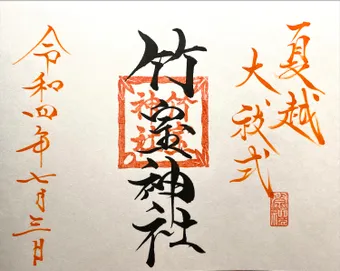 夏越
大祓式
竹室神社
令和四年七月三日